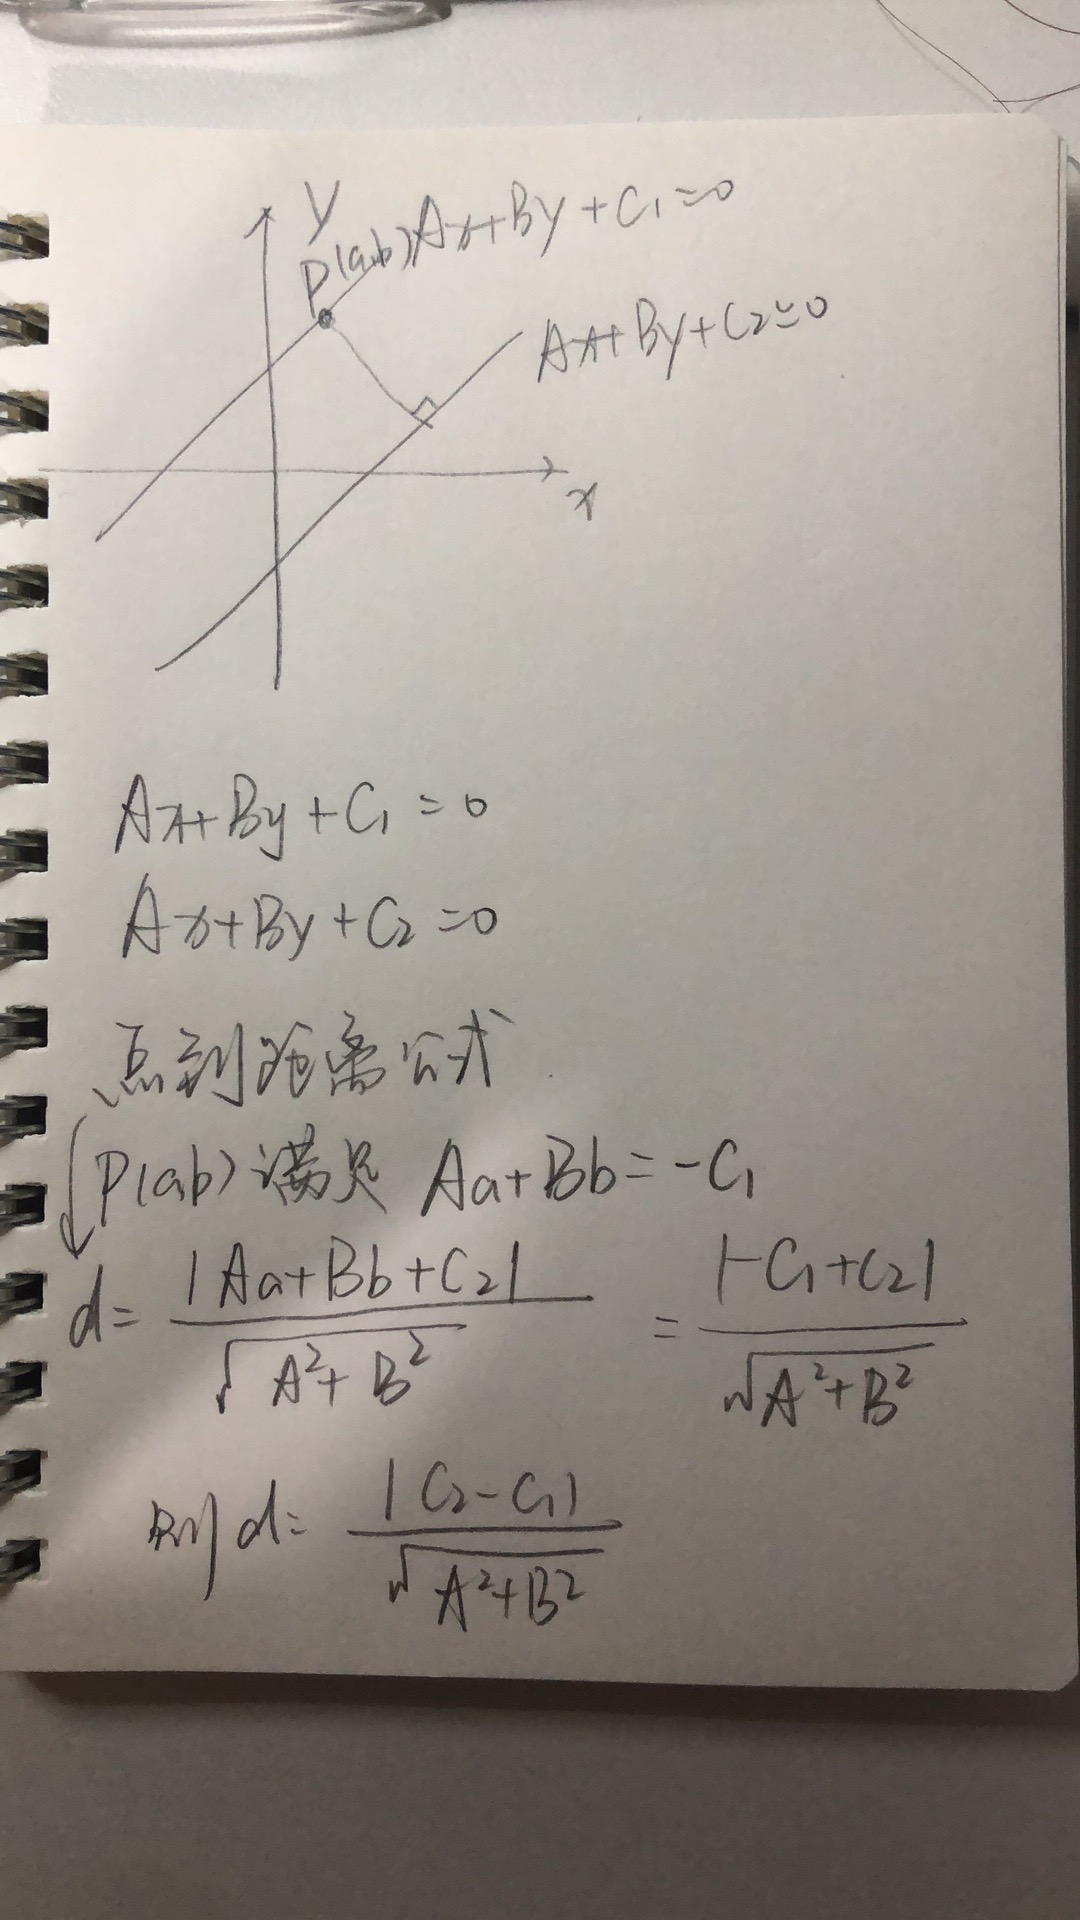 y
P(a,b) Ax+By+C₁=0
Ax+By+C₂=0
x
Ax+By+C₁=0
Ax+By+C₂=0
点到距离公式
P(a,b)满足 Aa+Bb=-C₁
d= |Aa+Bb+C₂| / √(A²+B²) = |-C₁+C₂| / √(A²+B²)
则d= |C₂-C₁| / √(A²+B²)